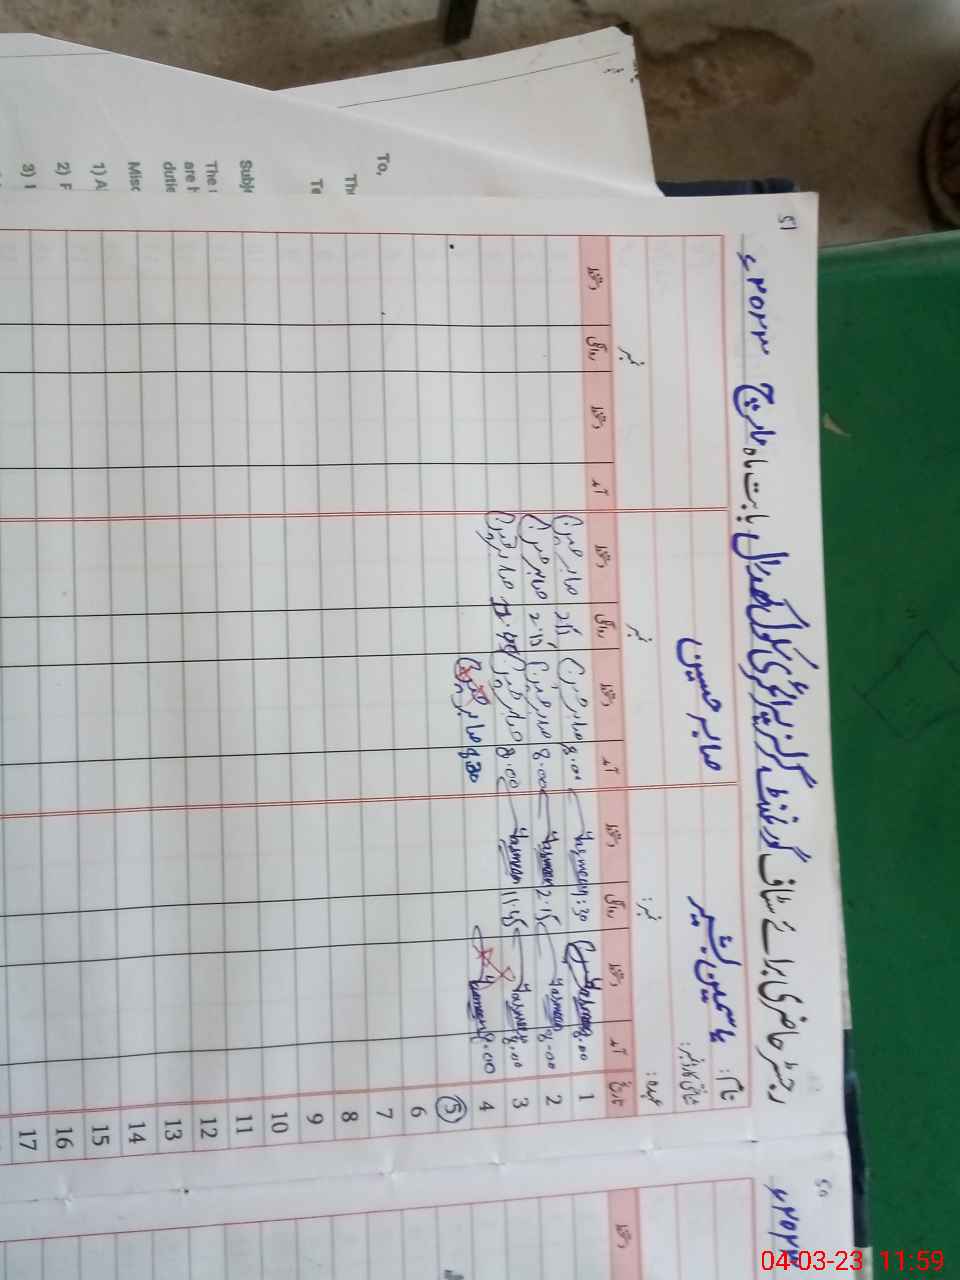 51
رجسٹر حاضری برائے سٹاف گورنمنٹ گرلز پرائمری سکول بابت ماہ مارچ ۲۰۲۳ء
نام: یاسمین بشیر صابر حسین
شناختی کارڈ نمبر:
عہدہ: نمبر: نمبر نمبر
تاریخ آمد دستخط روانگی دستخط آمد دستخط روانگی دستخط آمد دستخط روانگی دستخط
1 8.00 Yasmeen 1:30 Yasmeen 8.00 صابر حسین 2.15 صابر حسین
2 8.00 Yasmeen 2.15 Yasmeen 8.00 صابر حسین 2.15 صابر حسین
3 8.00 Yasmeen 11.45 Yasmeen 8.00 صابر حسین 11.45 صابر حسین
4 8.00 Yasmeen 8.30 صابر حسین
5
6
7
8
9
10
11
12
13
14
15
16
17
50
۲۰۲۳ء
دستخط
To,
Subje
The
are h
dutie
Misc
1) A
2) F
3) I
04-03-23 11:59